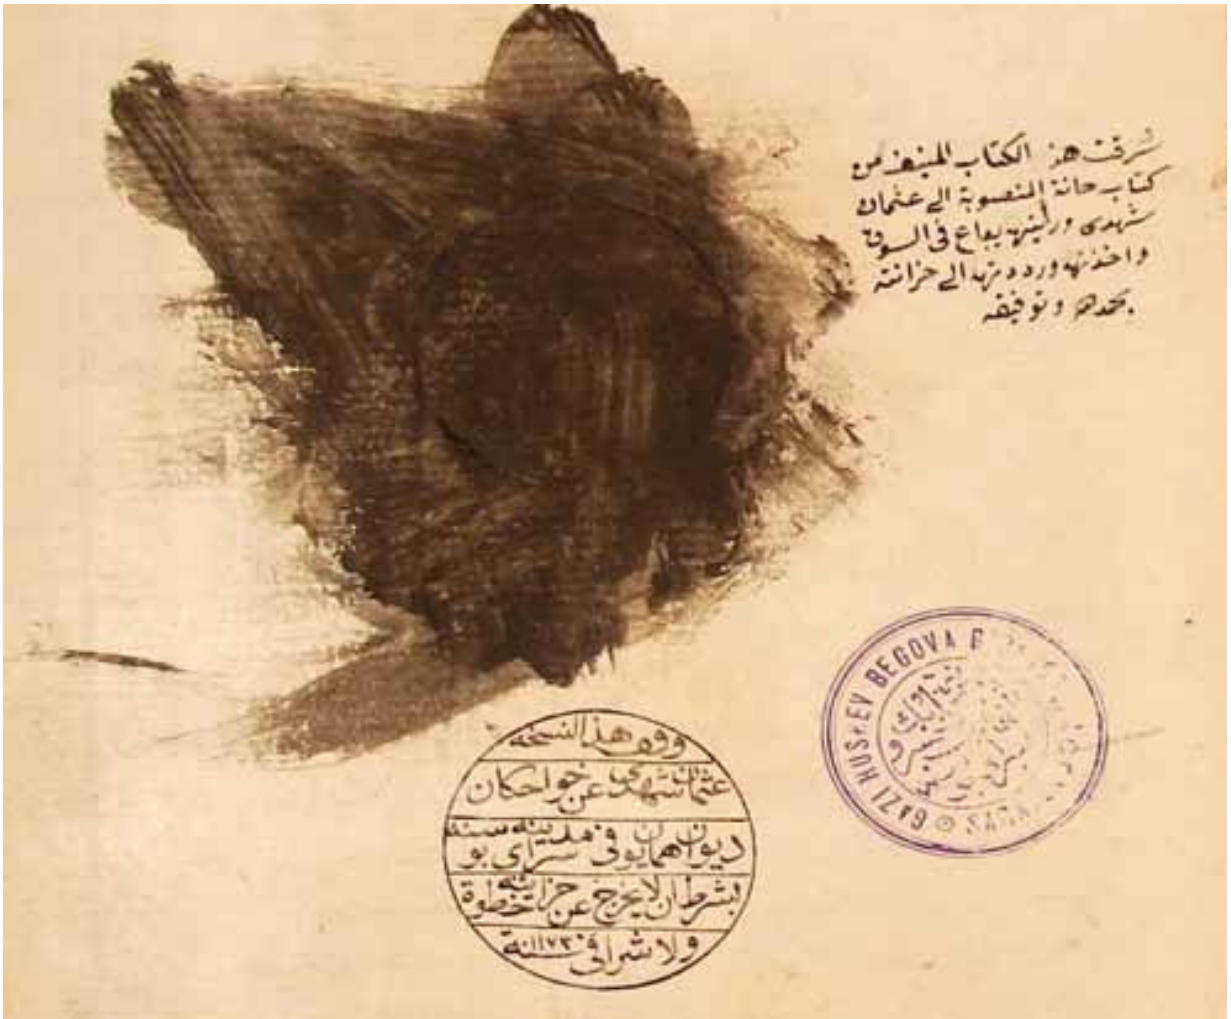 سرقت هذ الكتاب المنيف من
كتاب حانة المنصوبة الى عثمان
شهدى ورئيته يباع فى السوق
واخذته ورددته الى خزانته
بحمده وتوفيقه
وقف هذ النسخة
عثمان شهدى عن خواجكان
ديوان همايون فى مدينه سراى بوسنه
بشرط ان لا يخرج عن خزانته خطوة
ولا شبرا فى سنة ١١٧٣
GAZI HUSREV BEGOVA